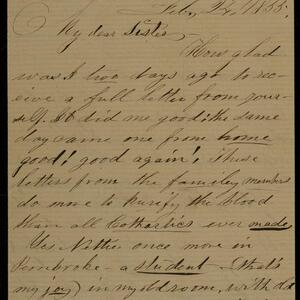 Feby 24, 1855.
My dear Sister,
How glad
was I two days ago to rec-
eive a full letter from your-
self. It did me good: the same
day came one from home
good! good again! These
letters from the family members
do more to purify the blood
than all Cathartics ever made
Yes Nettie once more in
Pembroke - a student (that's
my joy) in my old room, with